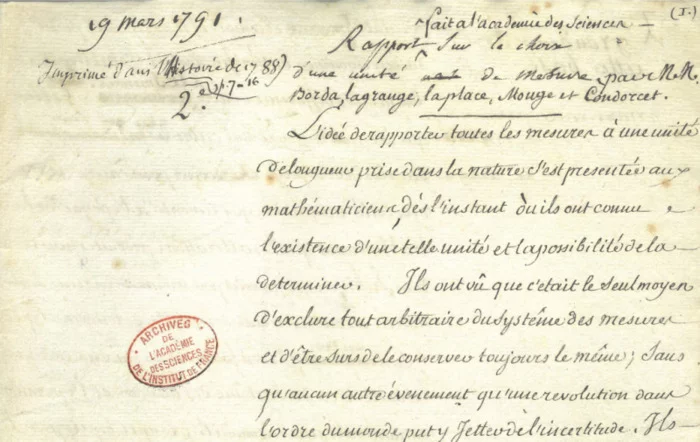 19 mars 1791.
(1.)
fait a l'académie des Sciences
Rapport sur le choix
Imprimé dans l'histoire de 1788) d'une unité de mesure par M.M.
2e p. 7-16
Borda, lagrange, laplace, Monge et Condorcet.
L'idée de rapporter toutes les mesures à une unité
de longueur prise dans la nature s'est presentée aux
mathématiciens dès l'instant où ils ont connu
l'existence d'une telle unité et la possibilité de la
determiner. Ils ont vû que c'était le seul moyen
d'exclure tout arbitraire du systême des mesures
et d'être surs de le conserver toujours le même; sans
qu'aucun autre évenement qu'une revolution dans
l'ordre du monde put y jetter de l'incertitude. Ils
ARCHIVES
DE
L'ACADÉMIE
DES SCIENCES
DE L'INSTITUT DE FRANCE